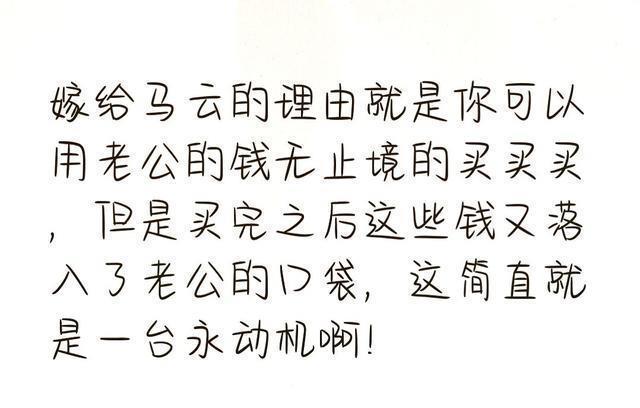 嫁给马云的理由就是你可以
用老公的钱无止境的买买买
,但是买完之后这些钱又落
入了老公的口袋,这简直就
是一台永动机啊!